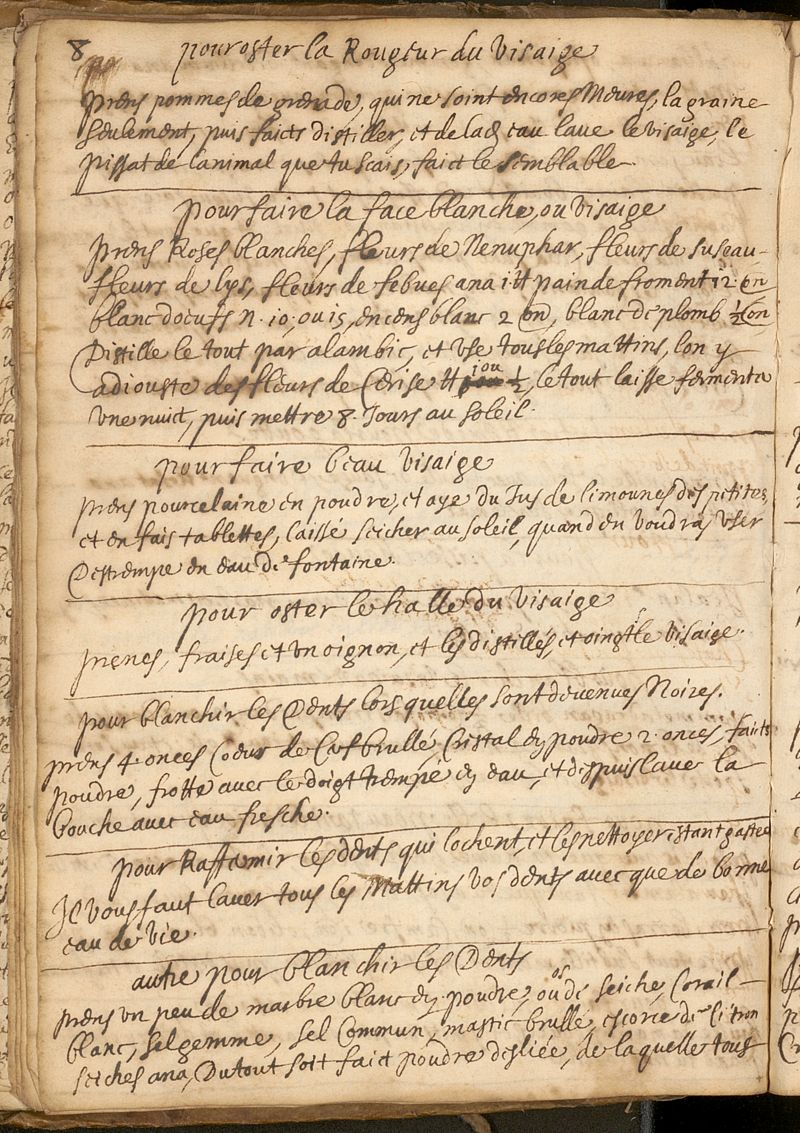 8
pour oster la Rougeur du Visaige
Prens pommes de grenade, qui ne soint encores Meures, la graine
seulement, puis faicts distiller, et de lad eau laue le visaige, le
pissat de lanimal que tu scais, faict le semblable
pour faire la face blanche, ou visaige
Prens Roses blanches, fleurs de Nenuphar, fleurs de suseau
fleurs de lys, fleurs de febues ana i ℔ pain de froment 12 on
blanc doeufs n. 10, ou 15, encens blanc 2 on, blanc de plomb ½ on
Distille le tout par alambic, et vse tous les mattins, lon y
adiouste des fleurs de Cerise ℔ 1 ou ½, le tout laisse fermenter
vne nuict, puis mettre 8. Jours au soleil.
pour faire beau visaige
prens pourcelaine en poudre, et aye du Jus de limounes des petites,
et en fais tablettes, laissé seicher au soleil, quand en voudras vser
Destrempe en eau de fontaine.
pour oster le halle du visaige
prenes, fraises et vn oignon, et les distillés et oingt le visaige.
pour blanchir les Dents lors quelles sont deuenues Noires.
prens 4. onces Coeur de Cerf brullé, Cristal en poudre 2. onces, faicts
poudre, frotte auec le doigt trempé en eau, et depuis lauer la
bouche auec eau fresche.
pour Raffermir les dents qui lochent, et les nettoyer estant gastee
Il vous faut lauer tous les Mattins vos dents auec que de bonne
eau de vie.
autre pour blanchir les Dents
prens vn peu de marbre blanc en poudre, ou os de seiche, Corail
blanc, sel gemme, sel Commun, mastic brullé, escorce de citron
seiches ana, Du tout soit faict poudre desliée, de laquelle tous